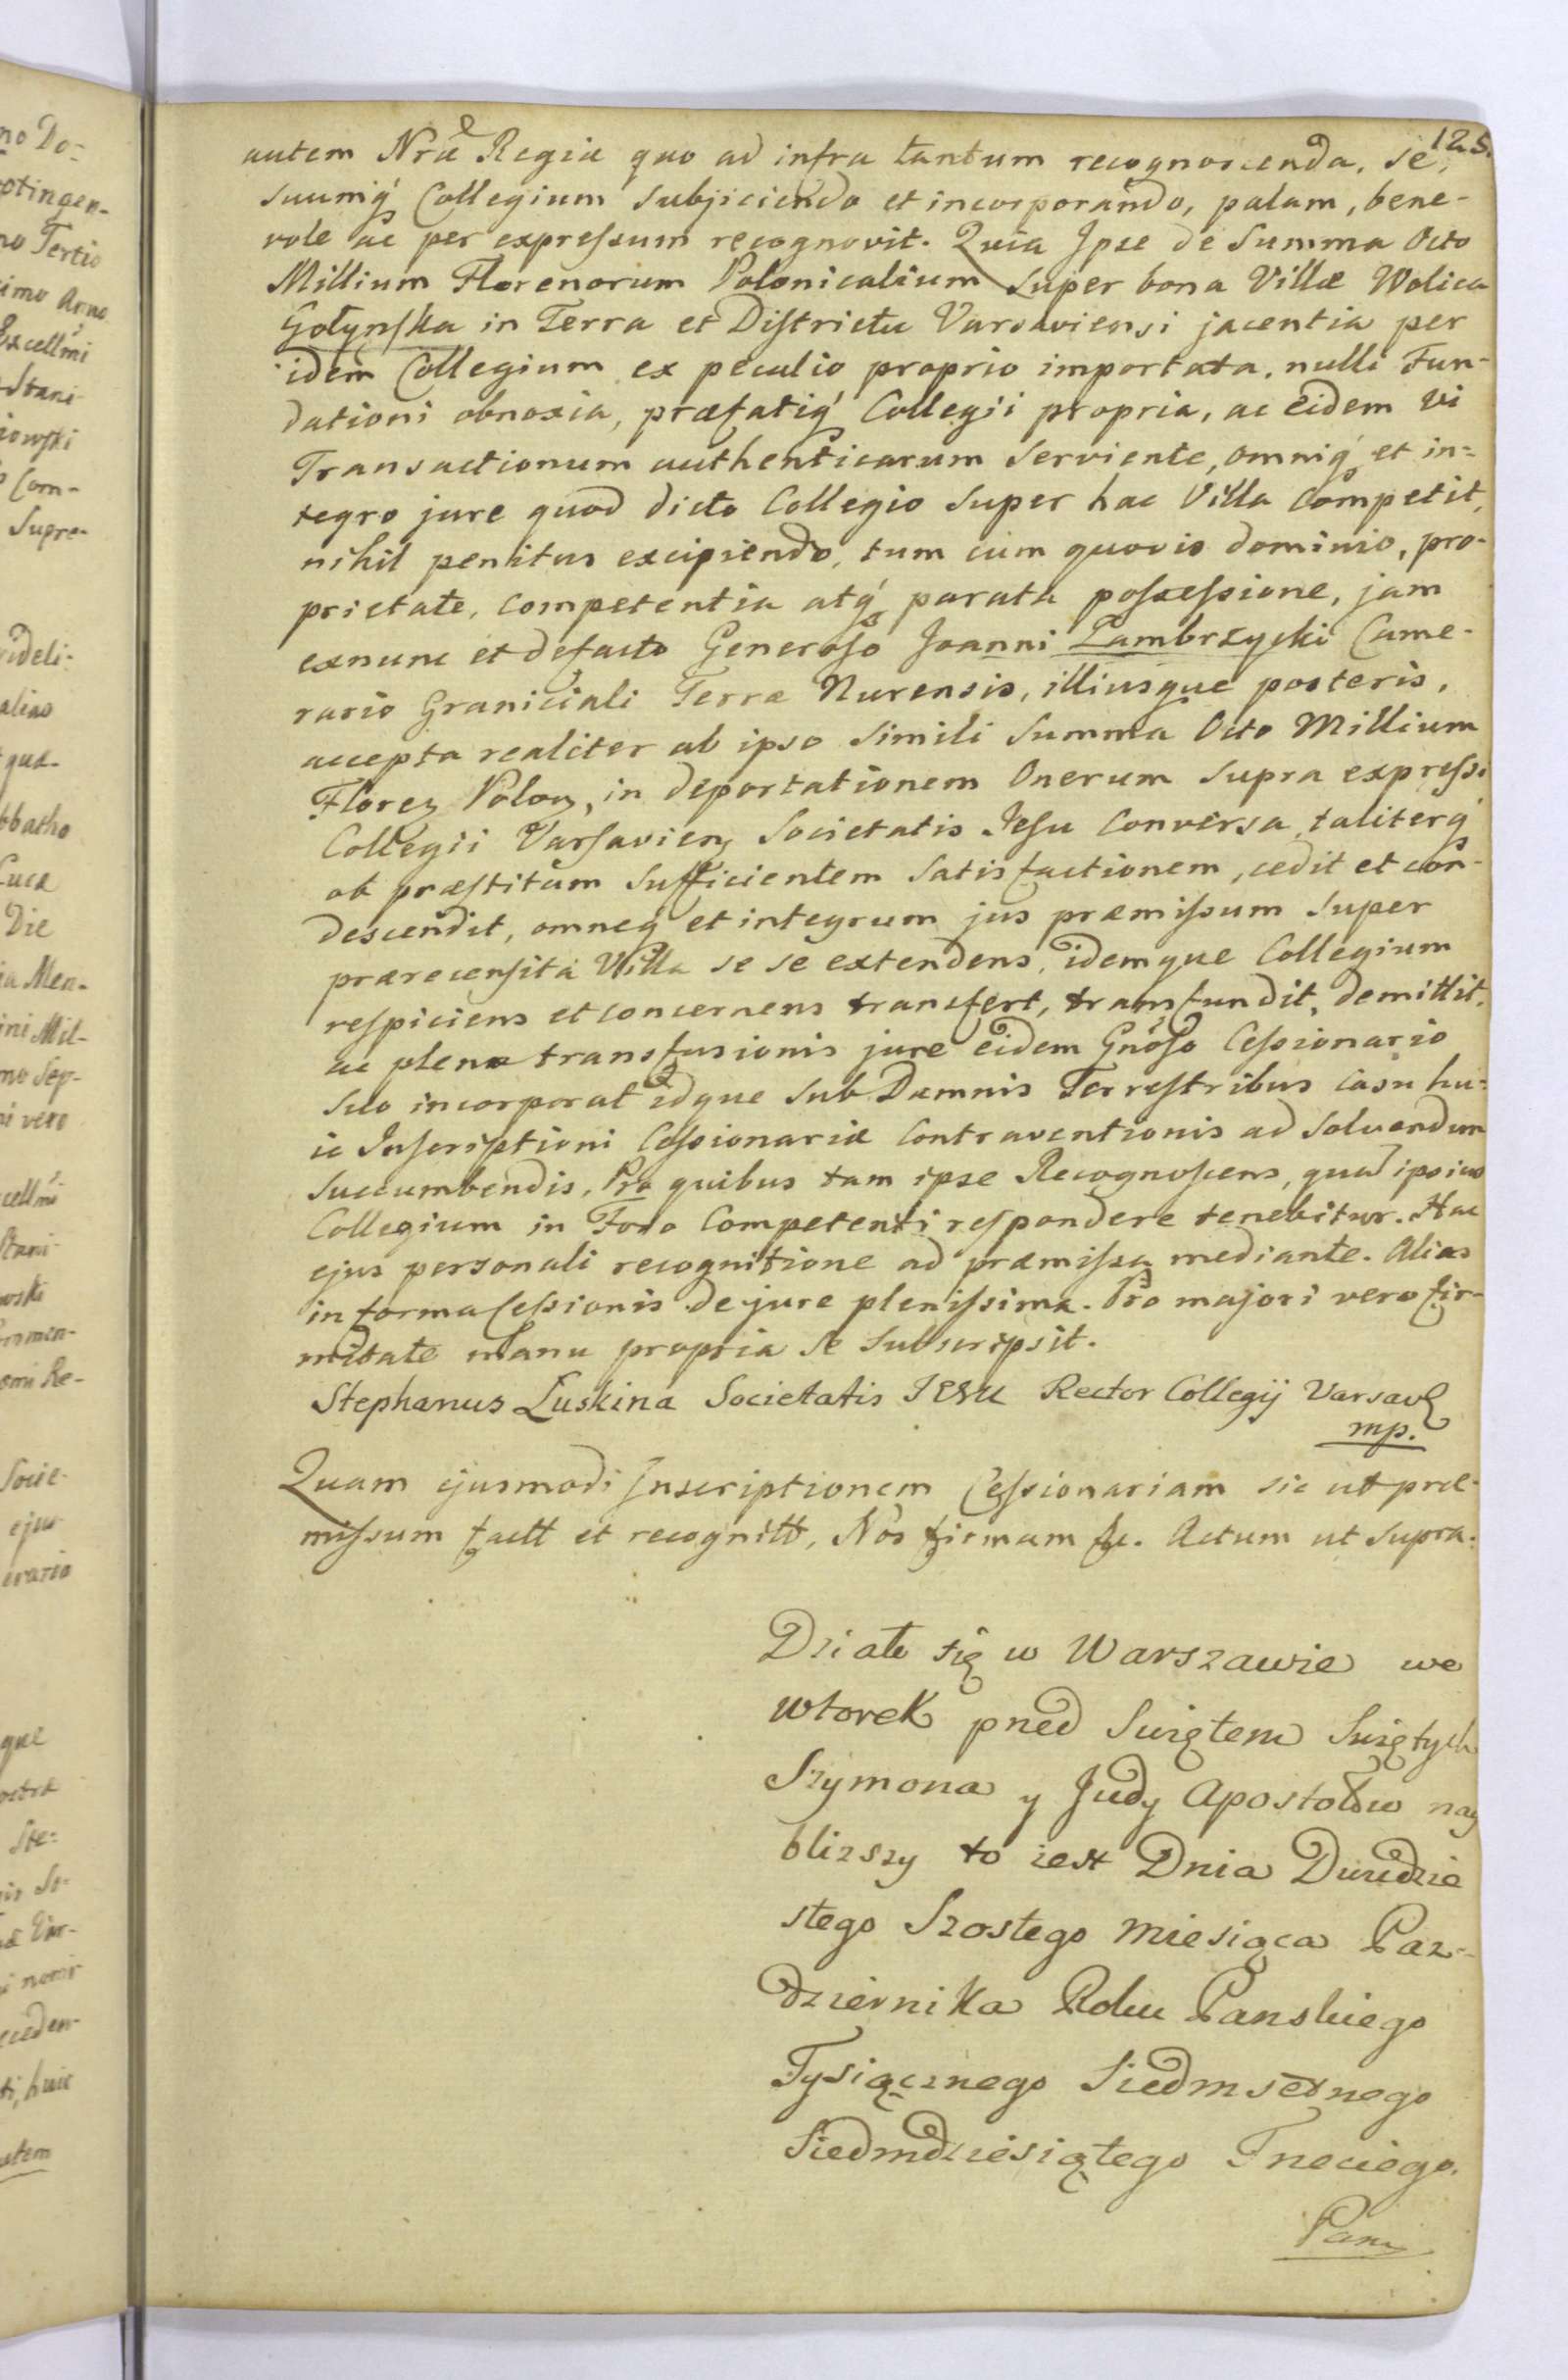 125.
autem Nrae Regiae quo ad infra tantum recognoscenda, se,
suumq́ Collegium subjiciendo et incorporando, palam, bene-
vole ac per expreſsum recognovit. Quia Ipse de Summa Octo
Millium Florenorum Polonicalium super bona Villæ Wolica
Gołynſka in Terra et Diſtrictu Varsaviensi jacentia per
idem Collegium ex peculio proprio importata, nulli Fun-
dationi obnoxia, præfatiq́ Collegii propria, ac Eidem vi
Transactionum authenticarum Serviente, omniq́ et in=
tegro jure quod dicto Collegio super hac Villa Competit,
nihil penitus excipiendo, tum cum quovis dominio, pro-
prietate, competentia atq́ parata poſseſsione, jam
exnunc et defacto Generoſo Joanni Zambrzycki Came-
rario Graniciali Terræ Nurensis, illiusque posteris,
accepta realiter ab ipso simili Summa Octo Millium
Floreꝫ Poloꝫ, in deportationem Onerum supra expreſsi
Collegii Varſavieꝫ Societatis Jeſu Conversa, taliterq́
ob præſtitam Sufficientem Satisfactionem, cedit et con-
descendit, omneq́ et integrum jus præmiſsum super
prærecenſita Villa se se extendens, idemque Collegium
reſpiciens et concernens transfert, transfundit, demittit,
ac plenæ transfusionis jure eidem Gnöſo Ceſsionario
suo incorporat idque sub Damnis Terreſtribus casu hu=
ic Inſcriptioni Ceſsionariæ Contraventionis ad Solvendum
Succumbendis. Pro quibus tam ipse Recognoſcens, quã ipsius
Collegium in Foro Competenti reſpondere tenebitur. Hac
ejus personali recognitione ad præmiſsa mediante. Alias
in forma Ceſsionis de jure pleniſsima. Pro majori vero fir-
mitate manu propria se subscripsit.
Stephanus Łuskina Societatis JESU Rector Collegij Varsav
mp.
Quam ejusmodi Inscriptionem Ceſsionariam sic ut præ-
miſsum factt et recognitt, Nos firmam &c. Actum ut supra.
Działo się w Warszawie we
wtorek przed Swiętem Swiętych
Szymona y Judy Apostołow nay
blizszy to iest Dnia Dwudzie
stego Szostego Miesiąca Paz-
dziernika Roku Panskiego
Tysiącznego Siedmsetnego
Siedmdziesiątego Trzeciego.